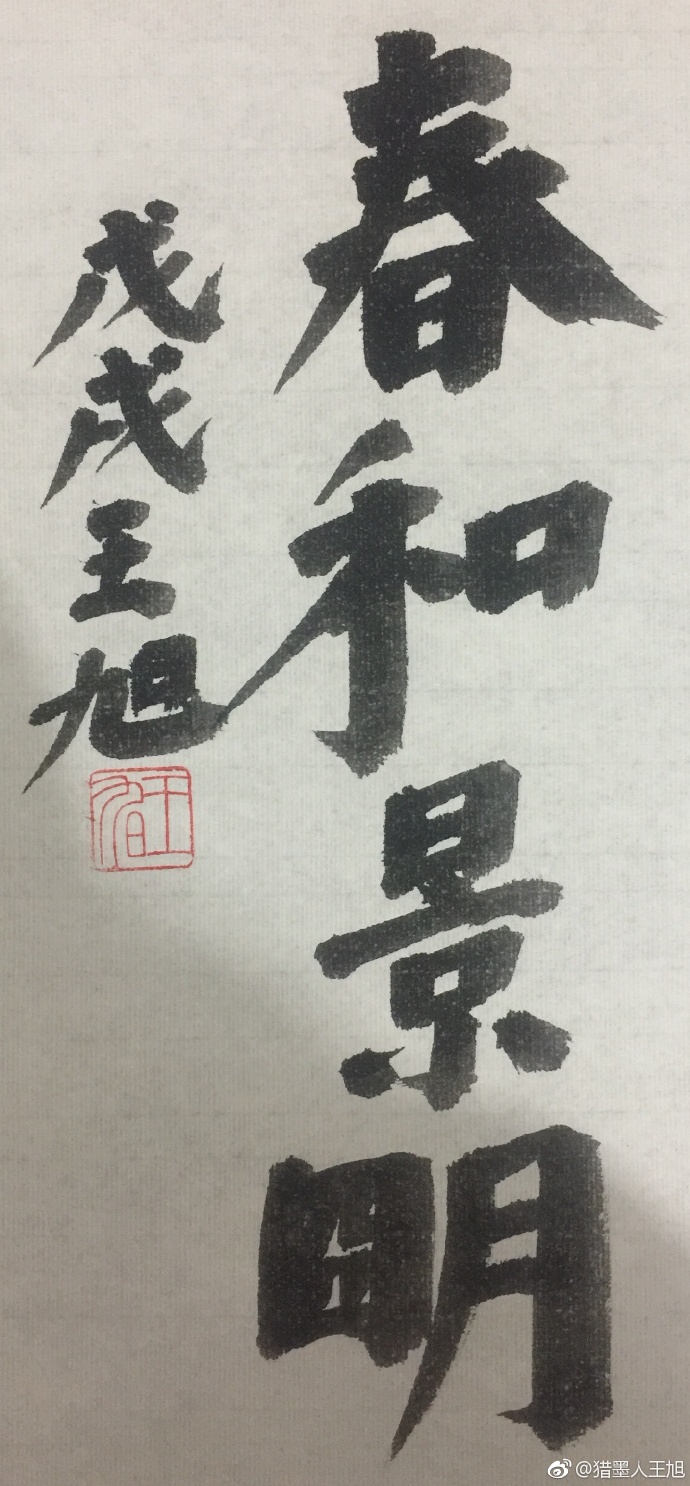 春和景明
戊戌王旭
王旭
@猎墨人王旭